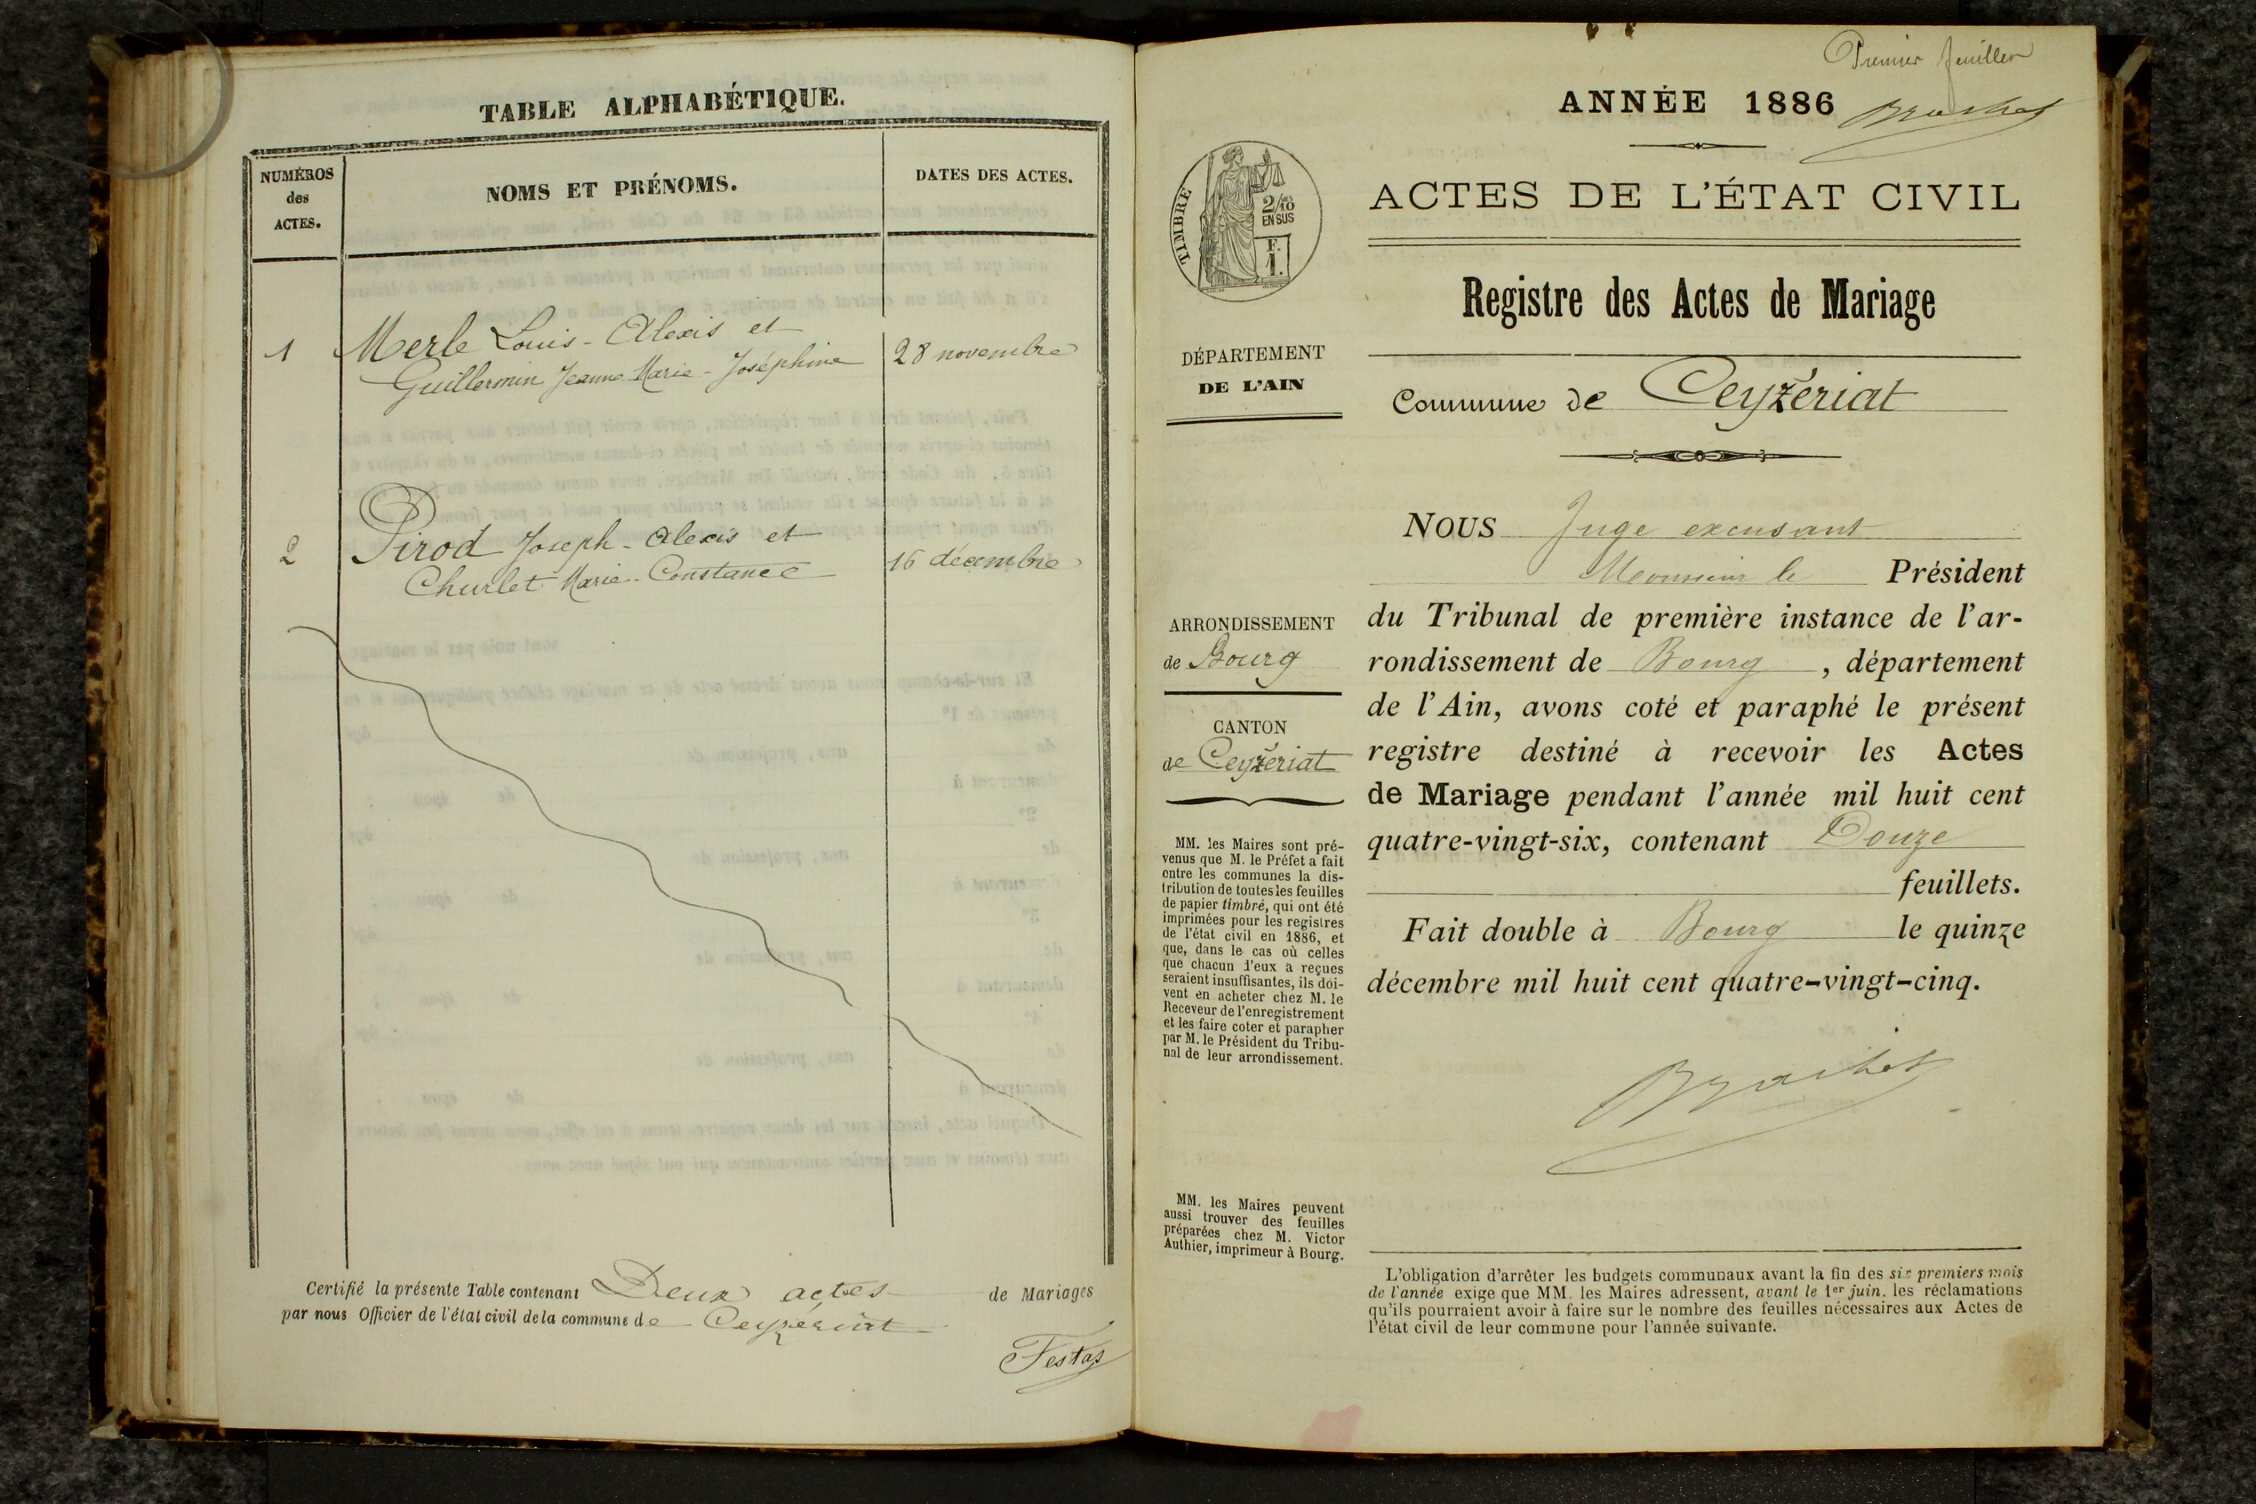 TABLE ALPHABÉTIQUE.
NUMÉROS
des
ACTES.
NOMS ET PRÉNOMS.
DATES DES ACTES.
1
Merle Louis-Alexis et
Guillermin Jeanne Marie-Joséphine
28 novembre
2
Pirod Joseph-Alexis et
Churlet Marie-Constance
16 décembre
Certifié la présente Table contenant Deux actes de Mariages
par nous Officier de l'état civil de la commune de Ceyzériat
Festas
Premier feuillet
ANNÉE 1886
Brachet
TIMBRE
2/10
EN SUS
F.
1.
ACTES DE L'ÉTAT CIVIL
Registre des Actes de Mariage
DÉPARTEMENT
DE L'AIN
Commune de Ceyzériat
NOUS Juge excusant
Monsieur le Président
du Tribunal de première instance de l'ar-
rondissement de Bourg, département
de l'Ain, avons coté et paraphé le présent
registre destiné à recevoir les Actes
de Mariage pendant l'année mil huit cent
quatre-vingt-six, contenant Douze
feuillets.
Fait double à Bourg le quinze
décembre mil huit cent quatre-vingt-cinq.
Brachet
ARRONDISSEMENT
de Bourg
CANTON
de Ceyzériat
MM. les Maires sont pré-
venus que M. le Préfet a fait
entre les communes la dis-
tribution de toutes les feuilles
de papier timbré, qui ont été
imprimées pour les registres
de l'état civil en 1886, et
que, dans le cas où celles
que chacun d'eux a reçues
seraient insuffisantes, ils doi-
vent en acheter chez M. le
Receveur de l'enregistrement
et les faire coter et parapher
par M. le Président du Tribu-
nal de leur arrondissement.
MM. les Maires peuvent
aussi trouver des feuilles
préparées chez M. Victor
Authier, imprimeur à Bourg.
L'obligation d'arrêter les budgets communaux avant la fin des six premiers mois
de l'année exige que MM. les Maires adressent, avant le 1er juin. les réclamations
qu'ils pourraient avoir à faire sur le nombre des feuilles nécessaires aux Actes de
l'état civil de leur commune pour l'année suivante.